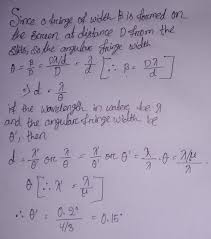 Since a fringe of width β is formed on
the screen at distance D from the
slits, so the angular fringe width
θ = β/D = Dλ/d/D = λ/d [∵ β = Dλ/d]
∴ d = λ/θ
If the wavelength in water be λ'
and the angular fringe width be
θ', then
d = λ'/θ' or λ/θ = λ'/θ' or θ' = λ'/λ . θ = λ/μ/λ .
θ [∵ λ' = λ/μ]
∴ θ' = 0.2°/4/3 = 0.15°